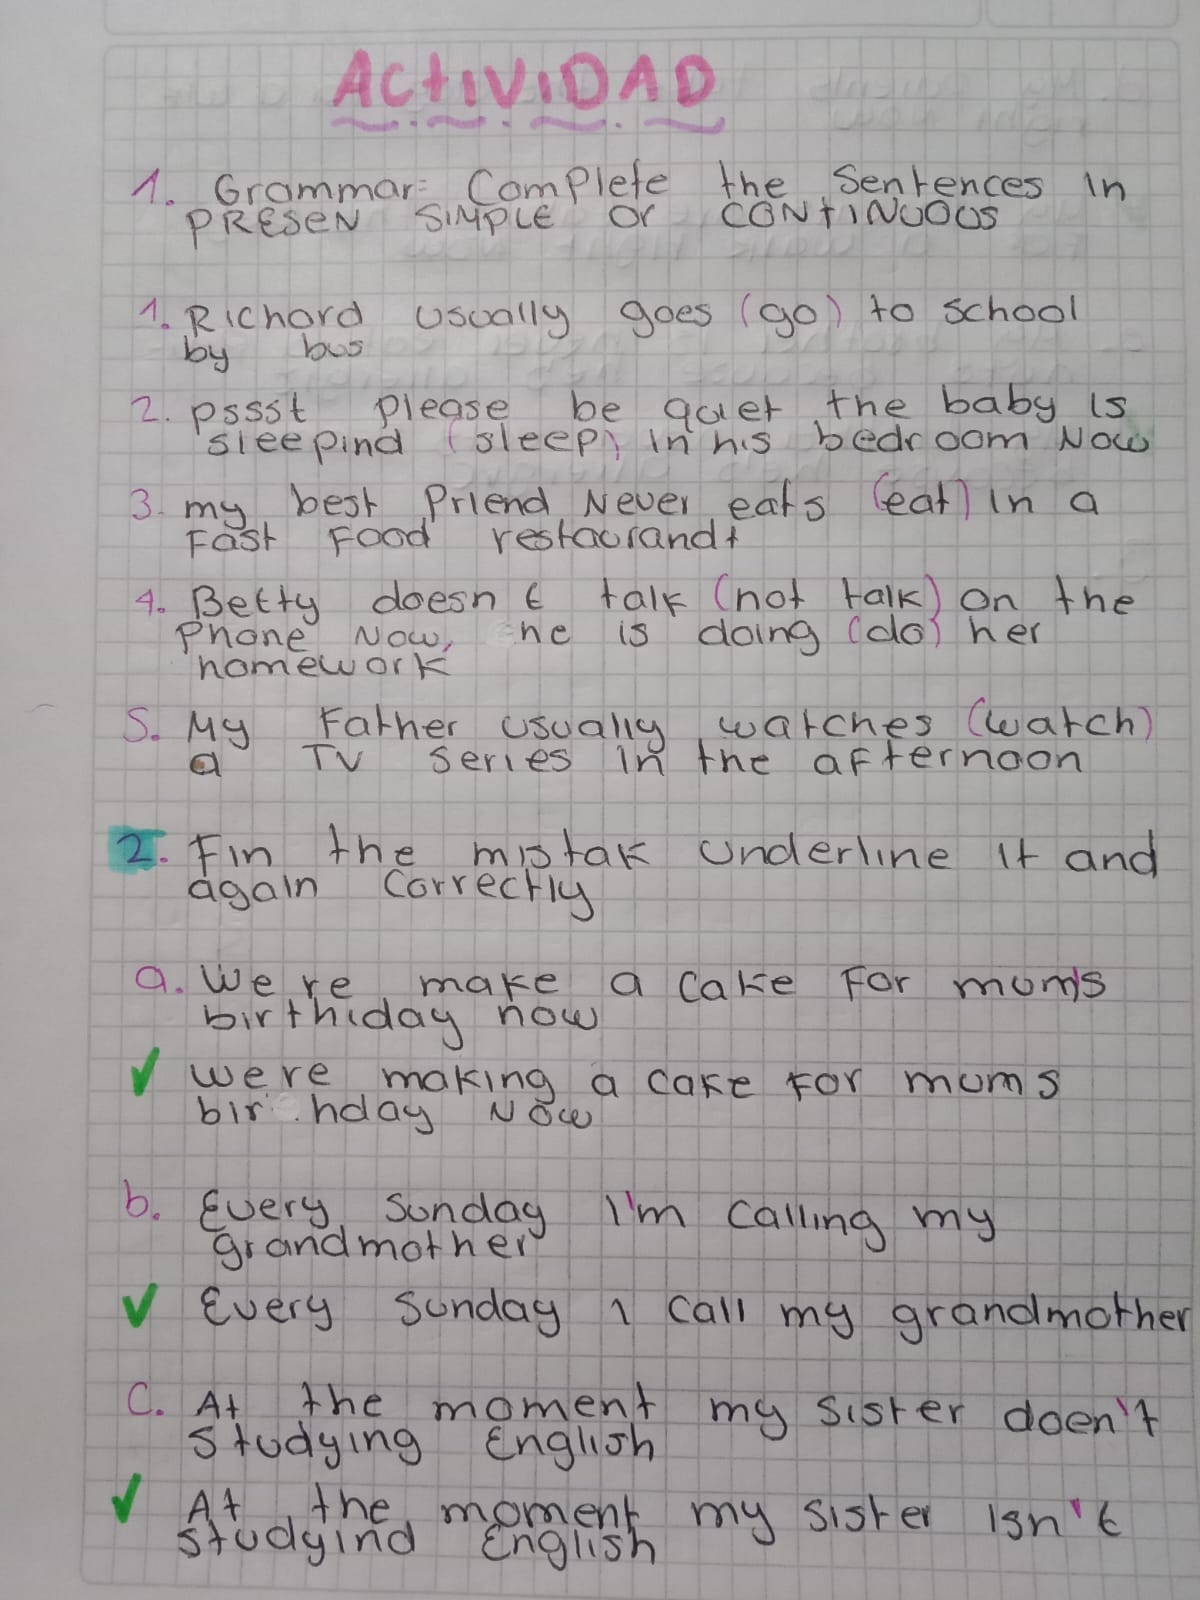 ACTIVIDAD
1. Grammar: Complete the sentences in
PRESEN SIMPLE or CONTINUOUS
1. Richard usually goes (go) to school
by bus
2. pssst please be quiet the baby is
sleepind (sleep) in his bedroom now
3. my best Priend never eats (eat) in a
Fast Food restaurandt
4. Betty doesn t talk (not talk) on the
Phone now, he is doing (do) her
homework
5. My Father usually watches (watch)
a TV series in the afternoon
2. Fin the mistak underline it and
again correctly
a. We re make a cake For mum's
birthiday now
✓ we re making a cake For mum s
bir hday now
b. Every Sunday I'm calling my
grandmother
✓ Every Sunday i call my grandmother
C. At the moment my sister doen't
studying English
✓ At the moment my sister isn't
studyind English